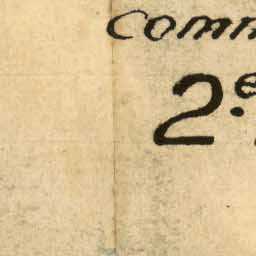 comm
2.e